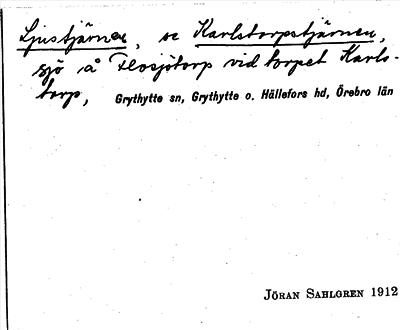 Ljustjärnen, se Karlstorpstjärnen,
sjö å Flosjötorp vid torpet Karls-
torp, Grythytte sn, Grythytte o. Hällefors hd, Örebro län
JÖRAN SAHLGREN 1912